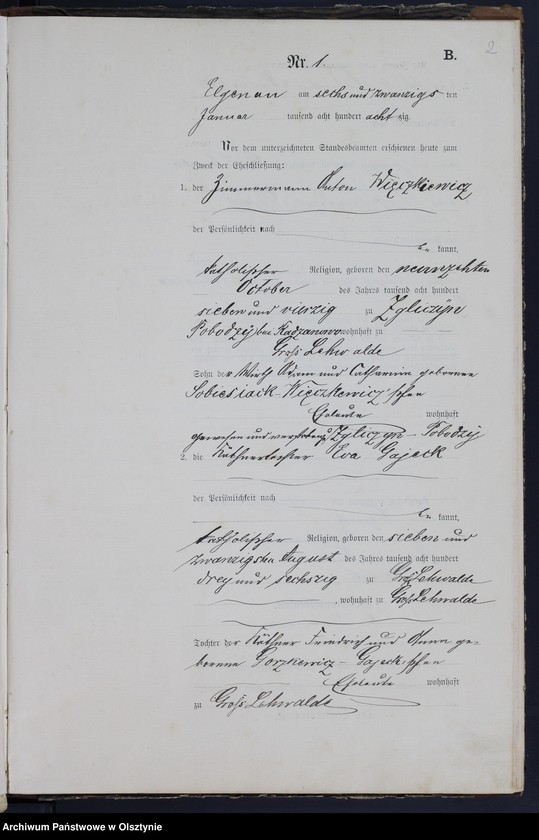 2
B.
Nr. 1.
Elgenau am sechs und zwanzigs ten
Januar tausend acht hundert acht zig
Vor dem unterzeichneten Standesbeamten erschienen heute zum
Zweck der Eheschließung:
1. der Zimmermann Anton Więczkiewicz
der Persönlichkeit nach
be kannt,
katholischer Religion, geboren den neunzehnten
October des Jahres tausend acht hundert
sieben und vierzig zu Zgliczyn
Pobodzy bei Radzanowo wohnhaft zu
Groß Lehwalde
Sohn der Wirth Adam und Catharina geborenen
Sobiesiack-Więczkewicz'schen
Eheleute wohnhaft
gewesen und verstorben zu Zgliczyn-Pobodzy
2. die Käthnertochter Eva Gajeck
der Persönlichkeit nach
be kannt,
katholischer Religion, geboren den sieben und
zwanzigsten August des Jahres tausend acht hundert
drey und sechszig zu Groß Lehwalde
, wohnhaft zu Groß Lehwalde
Tochter der Käthner Friedrich und Anna ge-
borene Gorzkewicz-Gajeck'schen
Eheleute wohnhaft
zu Groß Lehwalde
Archiwum Państwowe w Olsztynie